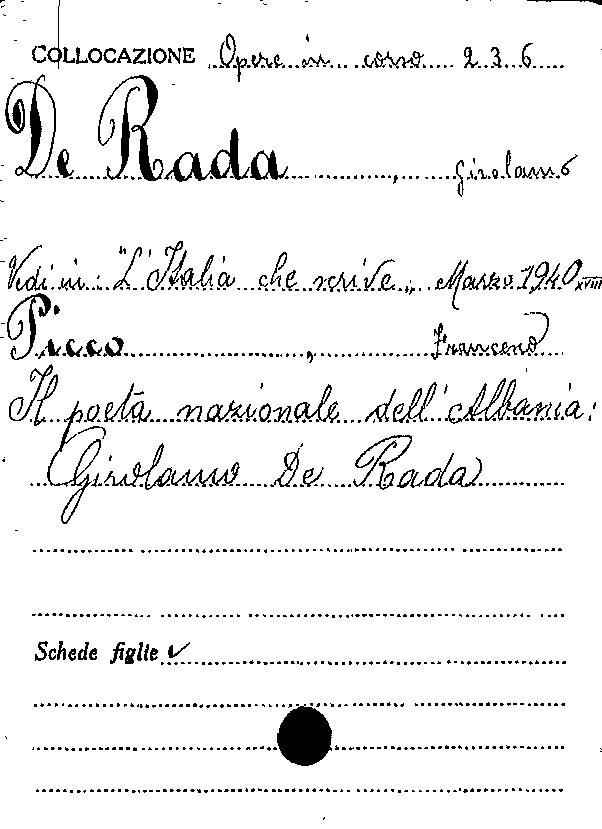 COLLOCAZIONE Opere in corso 2 3 6
De Rada, Girolamo
Vedi in: "L'Italia che scrive„ Marzo 1940 XVIII
Picco, Francesco
Il poeta nazionale dell'Albania:
Girolamo De Rada
Schede figlie ✓